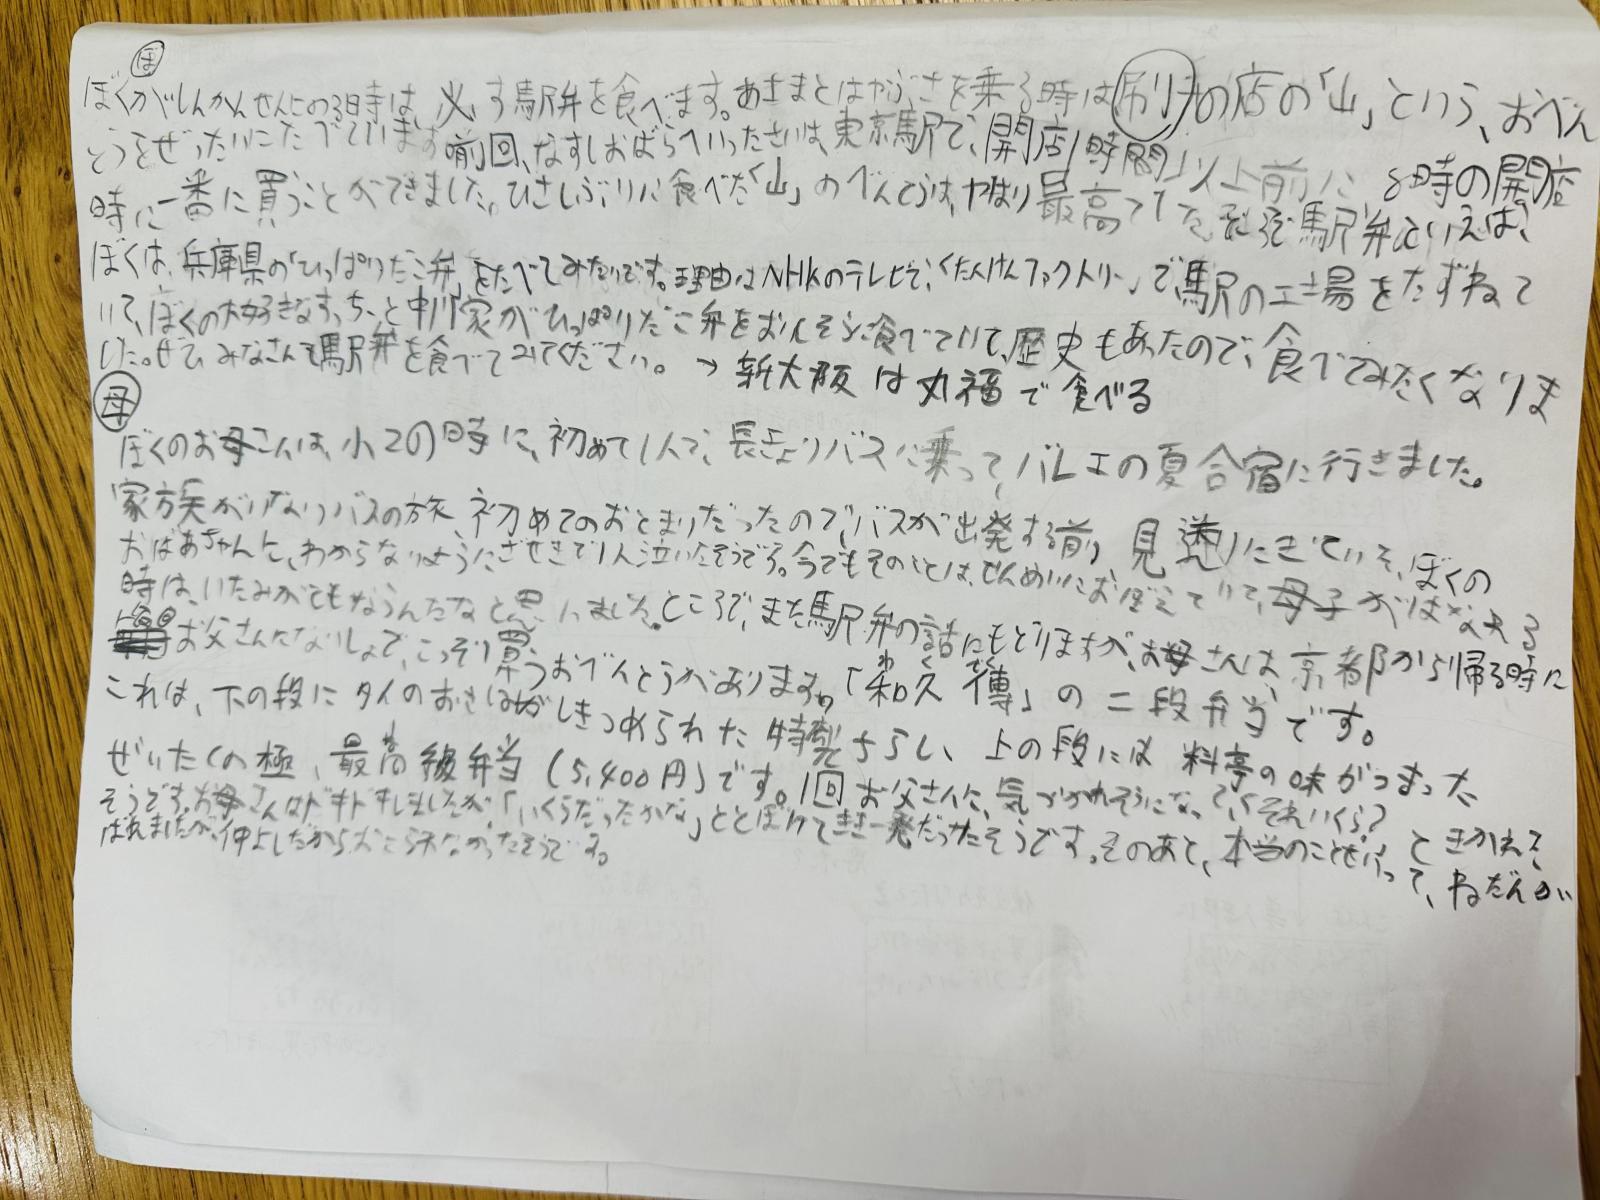 ぼ
ぼくがしんかんせんにのる時は、必す駅弁を食べます。あさまとはやぶさを乗る時は刷りの店の「山」という、おべん
とうをぜったいにたべています。前回、なすしおばらへいったさいは、東京駅で、開店1時間以上前に8時の開店
時に一番に買うことができました。ひさしぶりに食べた「山」のべんとうは、やはり最高でした。それで駅弁といえば、
ぼくは、兵庫県の「ひっぱりだこ弁」をたべてみたいです。理由はNHKのテレビで、「たんけんファクトリー」で駅の工場をたずねて
いて、ぼくの大好きなすっちーと中川家がひっぱりだこ弁をおいしそうに食べていて、歴史もあったので、食べてみたくなりま
した。ぜひみなさんも駅弁を食べてみてください。→新大阪は丸福で食べる
母
ぼくのお母さんは、小2の時に、初めて1人で、長きょりバスに乗って、バレエの夏合宿に行きました。
家族がいないバスの旅、初めてのおとまりだったので、バスが出発する前、見送りにきていた、ぼくの
おばあちゃんに、わからないようにざせきで1人泣いたそうです。今でもそのことは、せんめいにおぼえていて、母子がはなれる
時は、いたみがともなうんだなと思いました。ところで、また駅弁の話にもどりますが、お母さんは京都から帰る時に
お父さんにないしょで、こっそり買うおべんとうがあります。「和久傳」の二段弁当です。
わくでん
これは、下の段にタイのおさしみがしきつめられた特製ちらし、上の段には料亭の味がつまった
ぜいたくの極、最高級弁当(5,400円)です。1回お父さんに、気づかれそうになって、「それいくら?」ときかれた
そうです。お母さんはドキドキしましたが、「いくらだったかな」ととぼけてき き一発だったそうです。そのあと、本当のことをいって、ねだんが
ばれましたが、仲よしだからおこられなかったそうです。